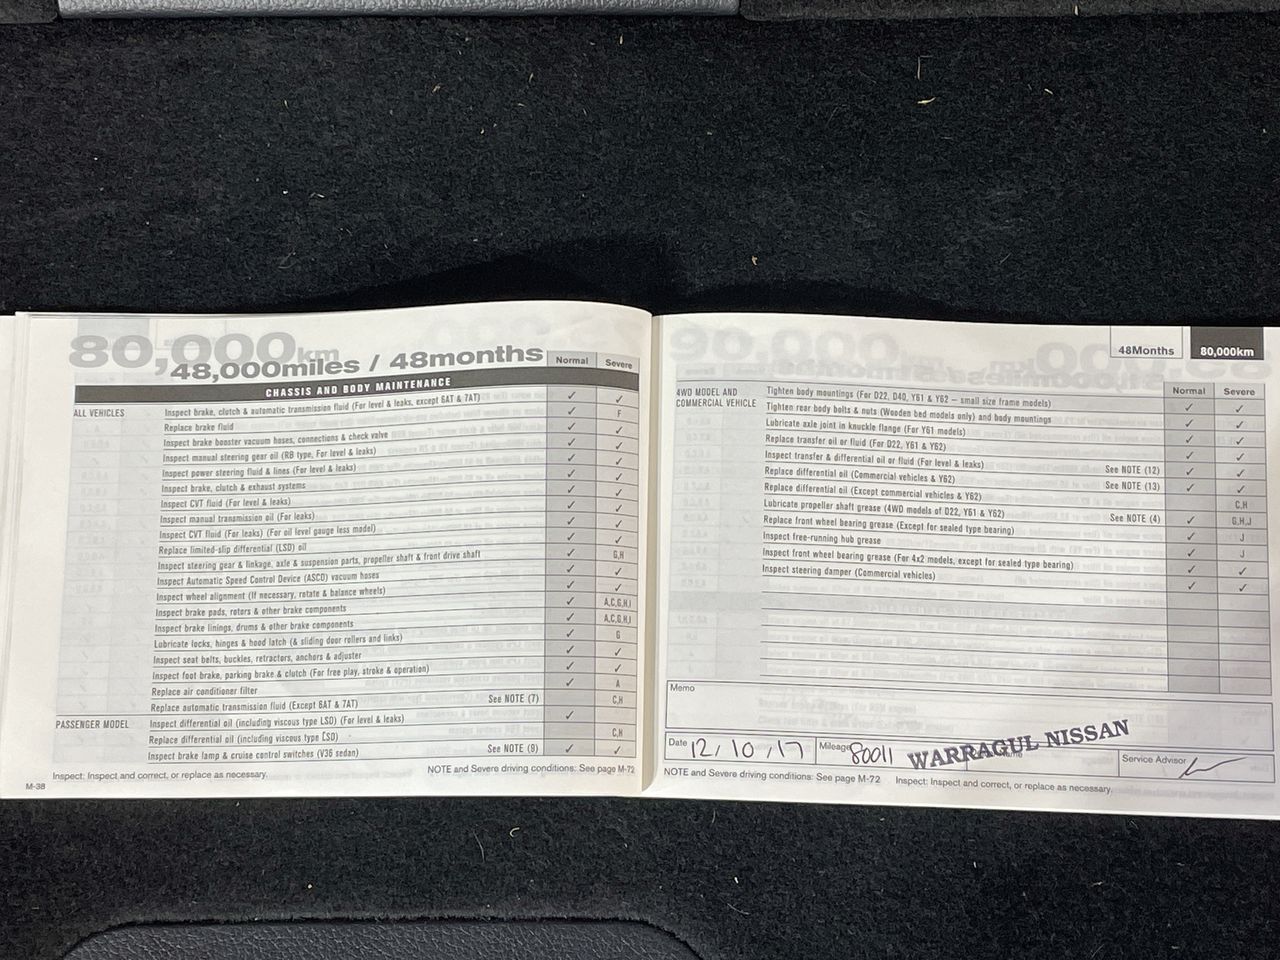 80,000km
48,000miles / 48months
Normal
Severe
CHASSIS AND BODY MAINTENANCE
ALL VEHICLES
Inspect brake, clutch & automatic transmission fluid (For level & leaks, except 6AT & 7AT) ✓ ✓
Replace brake fluid ✓ F
Inspect brake booster vacuum hoses, connections & check valve ✓ ✓
Inspect manual steering gear oil (RB type, For level & leaks) ✓ ✓
Inspect power steering fluid & lines (For level & leaks) ✓ ✓
Inspect brake, clutch & exhaust systems ✓ ✓
Inspect CVT fluid (For level & leaks) ✓ ✓
Inspect manual transmission oil (For leaks) ✓ ✓
Inspect CVT fluid (For leaks) (For oil level gauge less model) ✓ ✓
Replace limited-slip differential (LSD) oil ✓ ✓
Inspect steering gear & linkage, axle & suspension parts, propeller shaft & front drive shaft ✓ G,H
Inspect Automatic Speed Control Device (ASCD) vacuum hoses ✓ ✓
Inspect wheel alignment (If necessary, rotate & balance wheels) ✓ ✓
Inspect brake pads, rotors & other brake components ✓ A,C,G,H,I
Inspect brake linings, drums & other brake components ✓ A,C,G,H,I
Lubricate locks, hinges & hood latch (& sliding door rollers and links) ✓ G
Inspect seat belts, buckles, retractors, anchors & adjuster ✓ ✓
Inspect foot brake, parking brake & clutch (For free play, stroke & operation) ✓ ✓
Replace air conditioner filter ✓ A
Replace automatic transmission fluid (Except 6AT & 7AT) See NOTE (7) C,H
PASSENGER MODEL
Inspect differential oil (including viscous type LSD) (For level & leaks) ✓
Replace differential oil (including viscous type LSD) C,H
Inspect brake lamp & cruise control switches (V36 sedan) See NOTE (9) ✓ ✓
Inspect: Inspect and correct, or replace as necessary.
NOTE and Severe driving conditions: See page M-72
M-38
48Months
80,000km
Normal
Severe
4WD MODEL AND
COMMERCIAL VEHICLE
Tighten body mountings (For D22, D40, Y61 & Y62 – small size frame models) ✓ ✓
Tighten rear body bolts & nuts (Wooden bed models only) and body mountings ✓ ✓
Lubricate axle joint in knuckle flange (For Y61 models) ✓ ✓
Replace transfer oil or fluid (For D22, Y61 & Y62) ✓ ✓
Inspect transfer & differential oil or fluid (For level & leaks) See NOTE (12) ✓ ✓
Replace differential oil (Commercial vehicles & Y62) See NOTE (13) ✓ ✓
Replace differential oil (Except commercial vehicles & Y62) C,H
Lubricate propeller shaft grease (4WD models of D22, Y61 & Y62) See NOTE (4) ✓ G,H,J
Replace front wheel bearing grease (Except for sealed type bearing) ✓ J
Inspect free-running hub grease ✓ J
Inspect front wheel bearing grease (For 4x2 models, except for sealed type bearing) ✓ ✓
Inspect steering damper (Commercial vehicles) ✓ ✓
Memo
Date 12/10/17
Mileage 80011
WARRAGUL NISSAN
Service Advisor
NOTE and Severe driving conditions: See page M-72
Inspect: Inspect and correct, or replace as necessary.